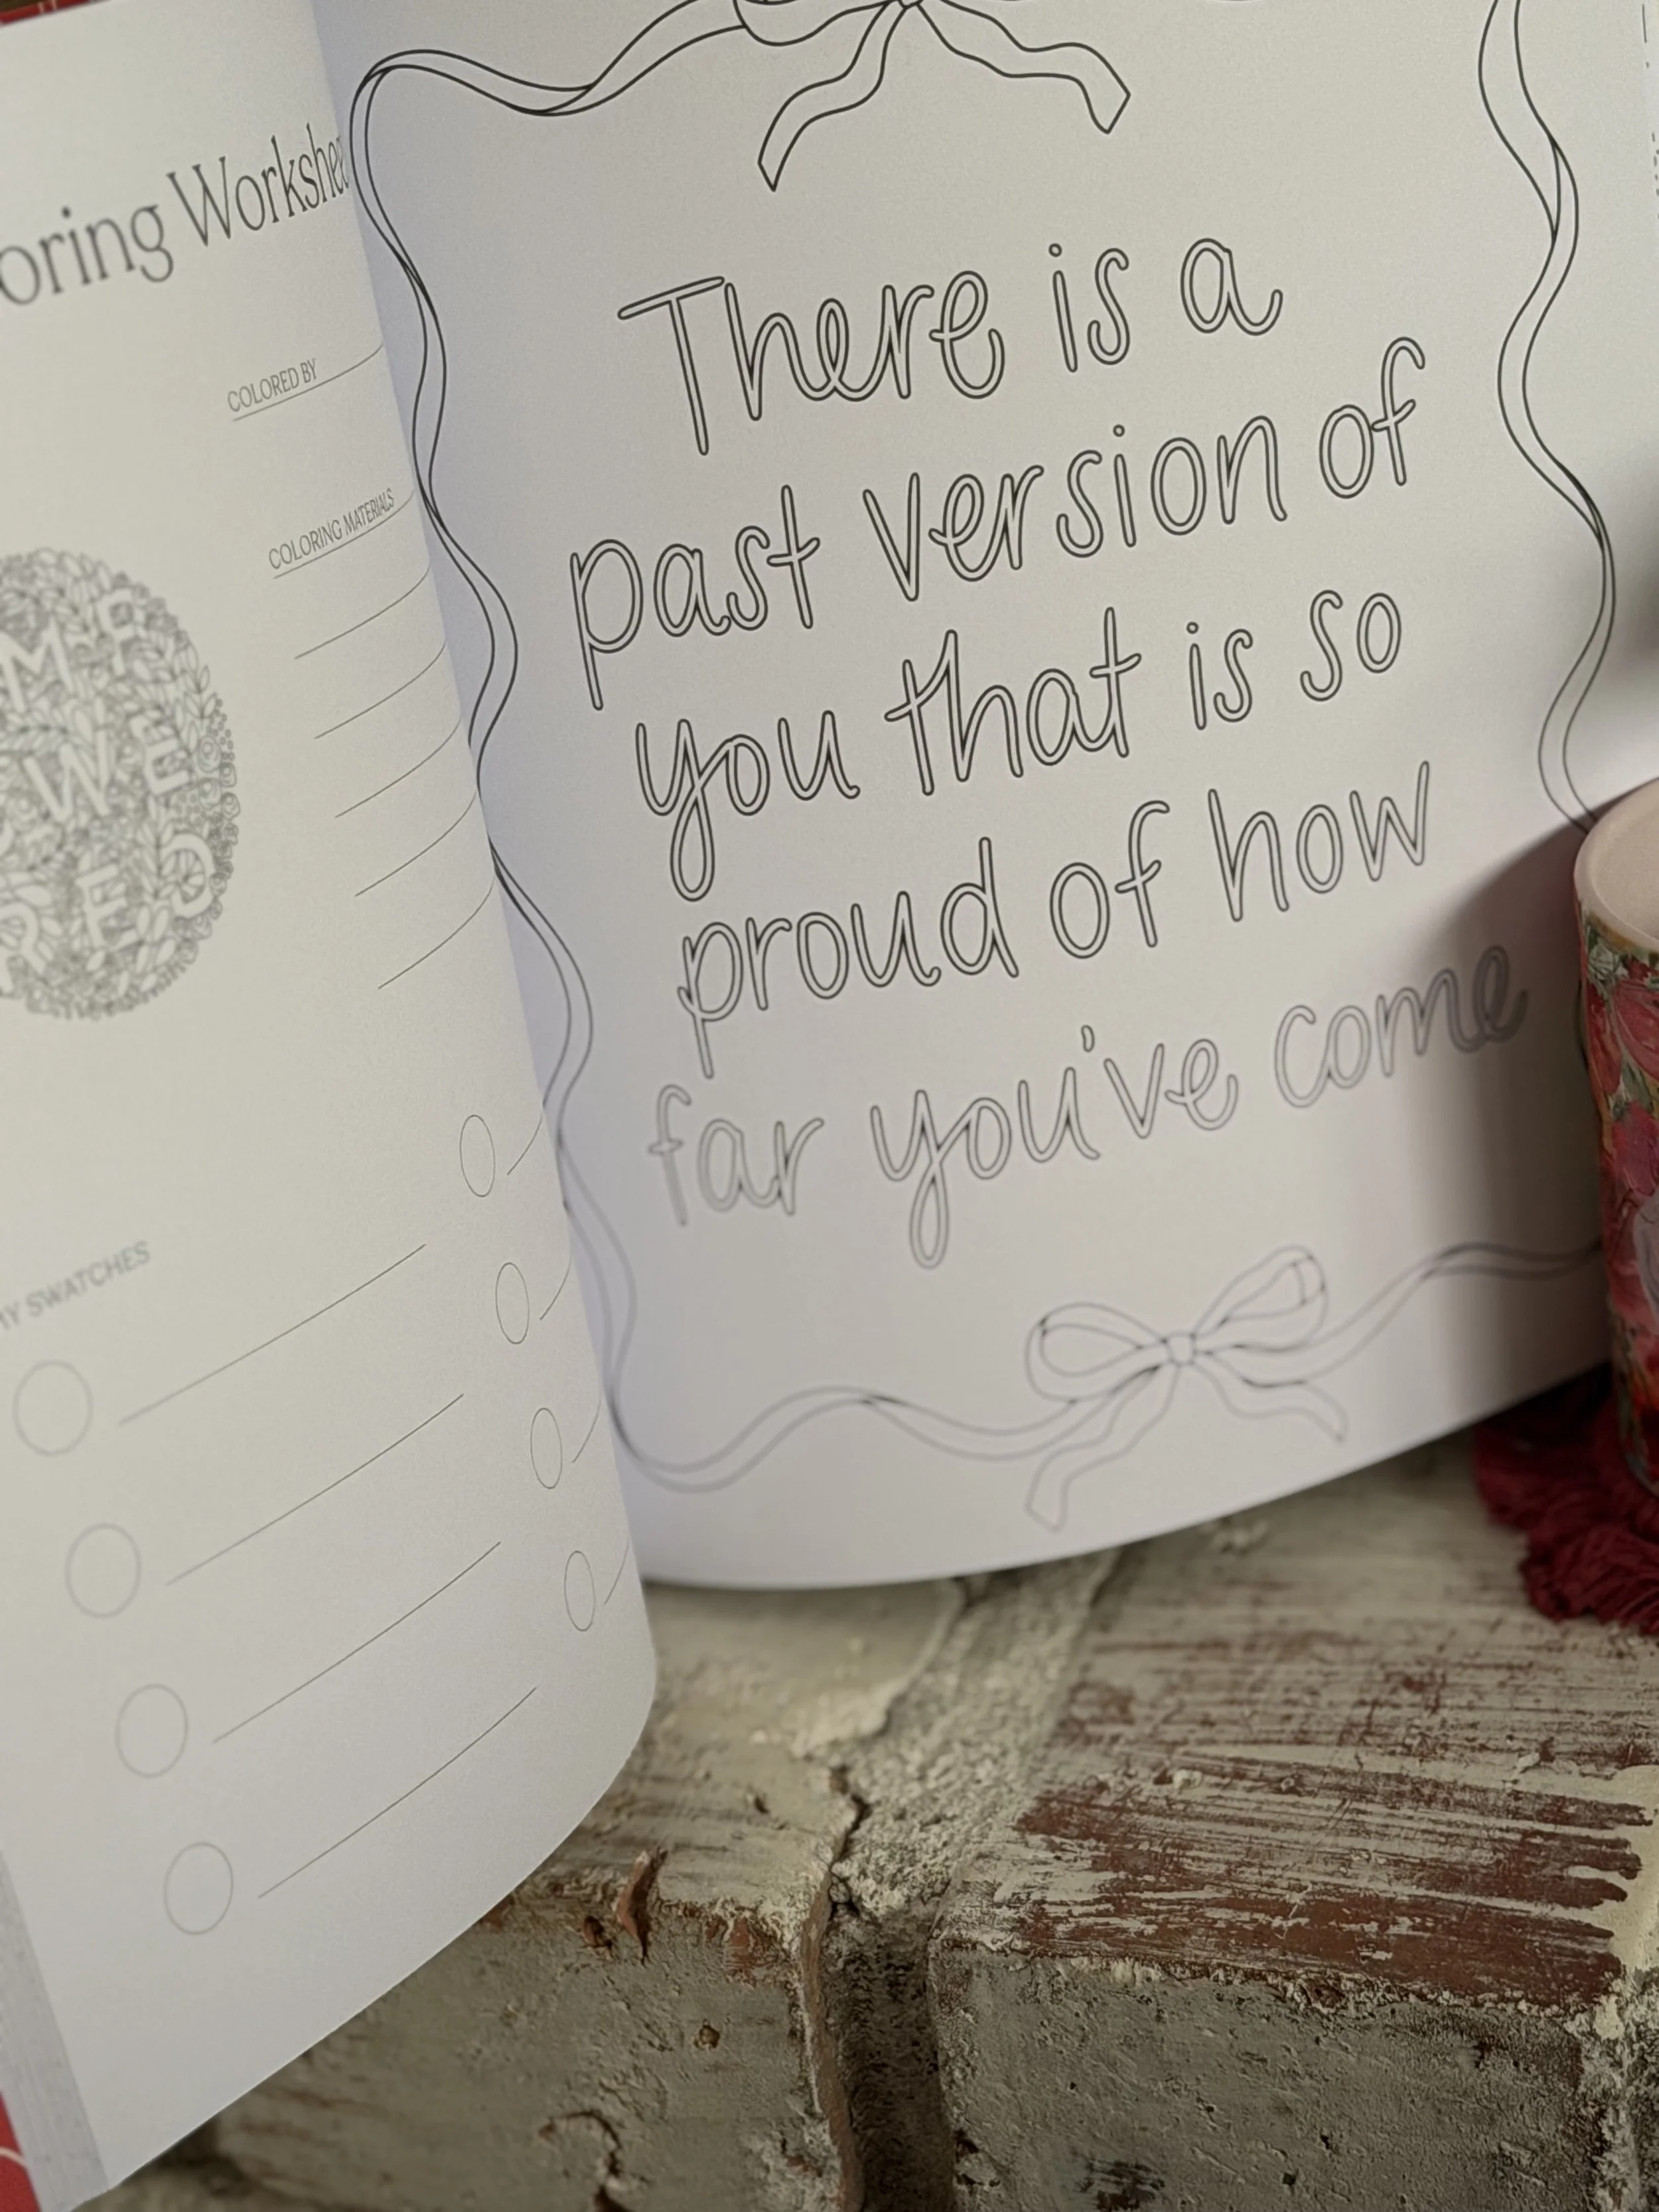 oring Workshe
COLORED BY
COLORING MATERIALS
MY SWATCHES
There is a
past version of
you that is so
proud of how
far you've come